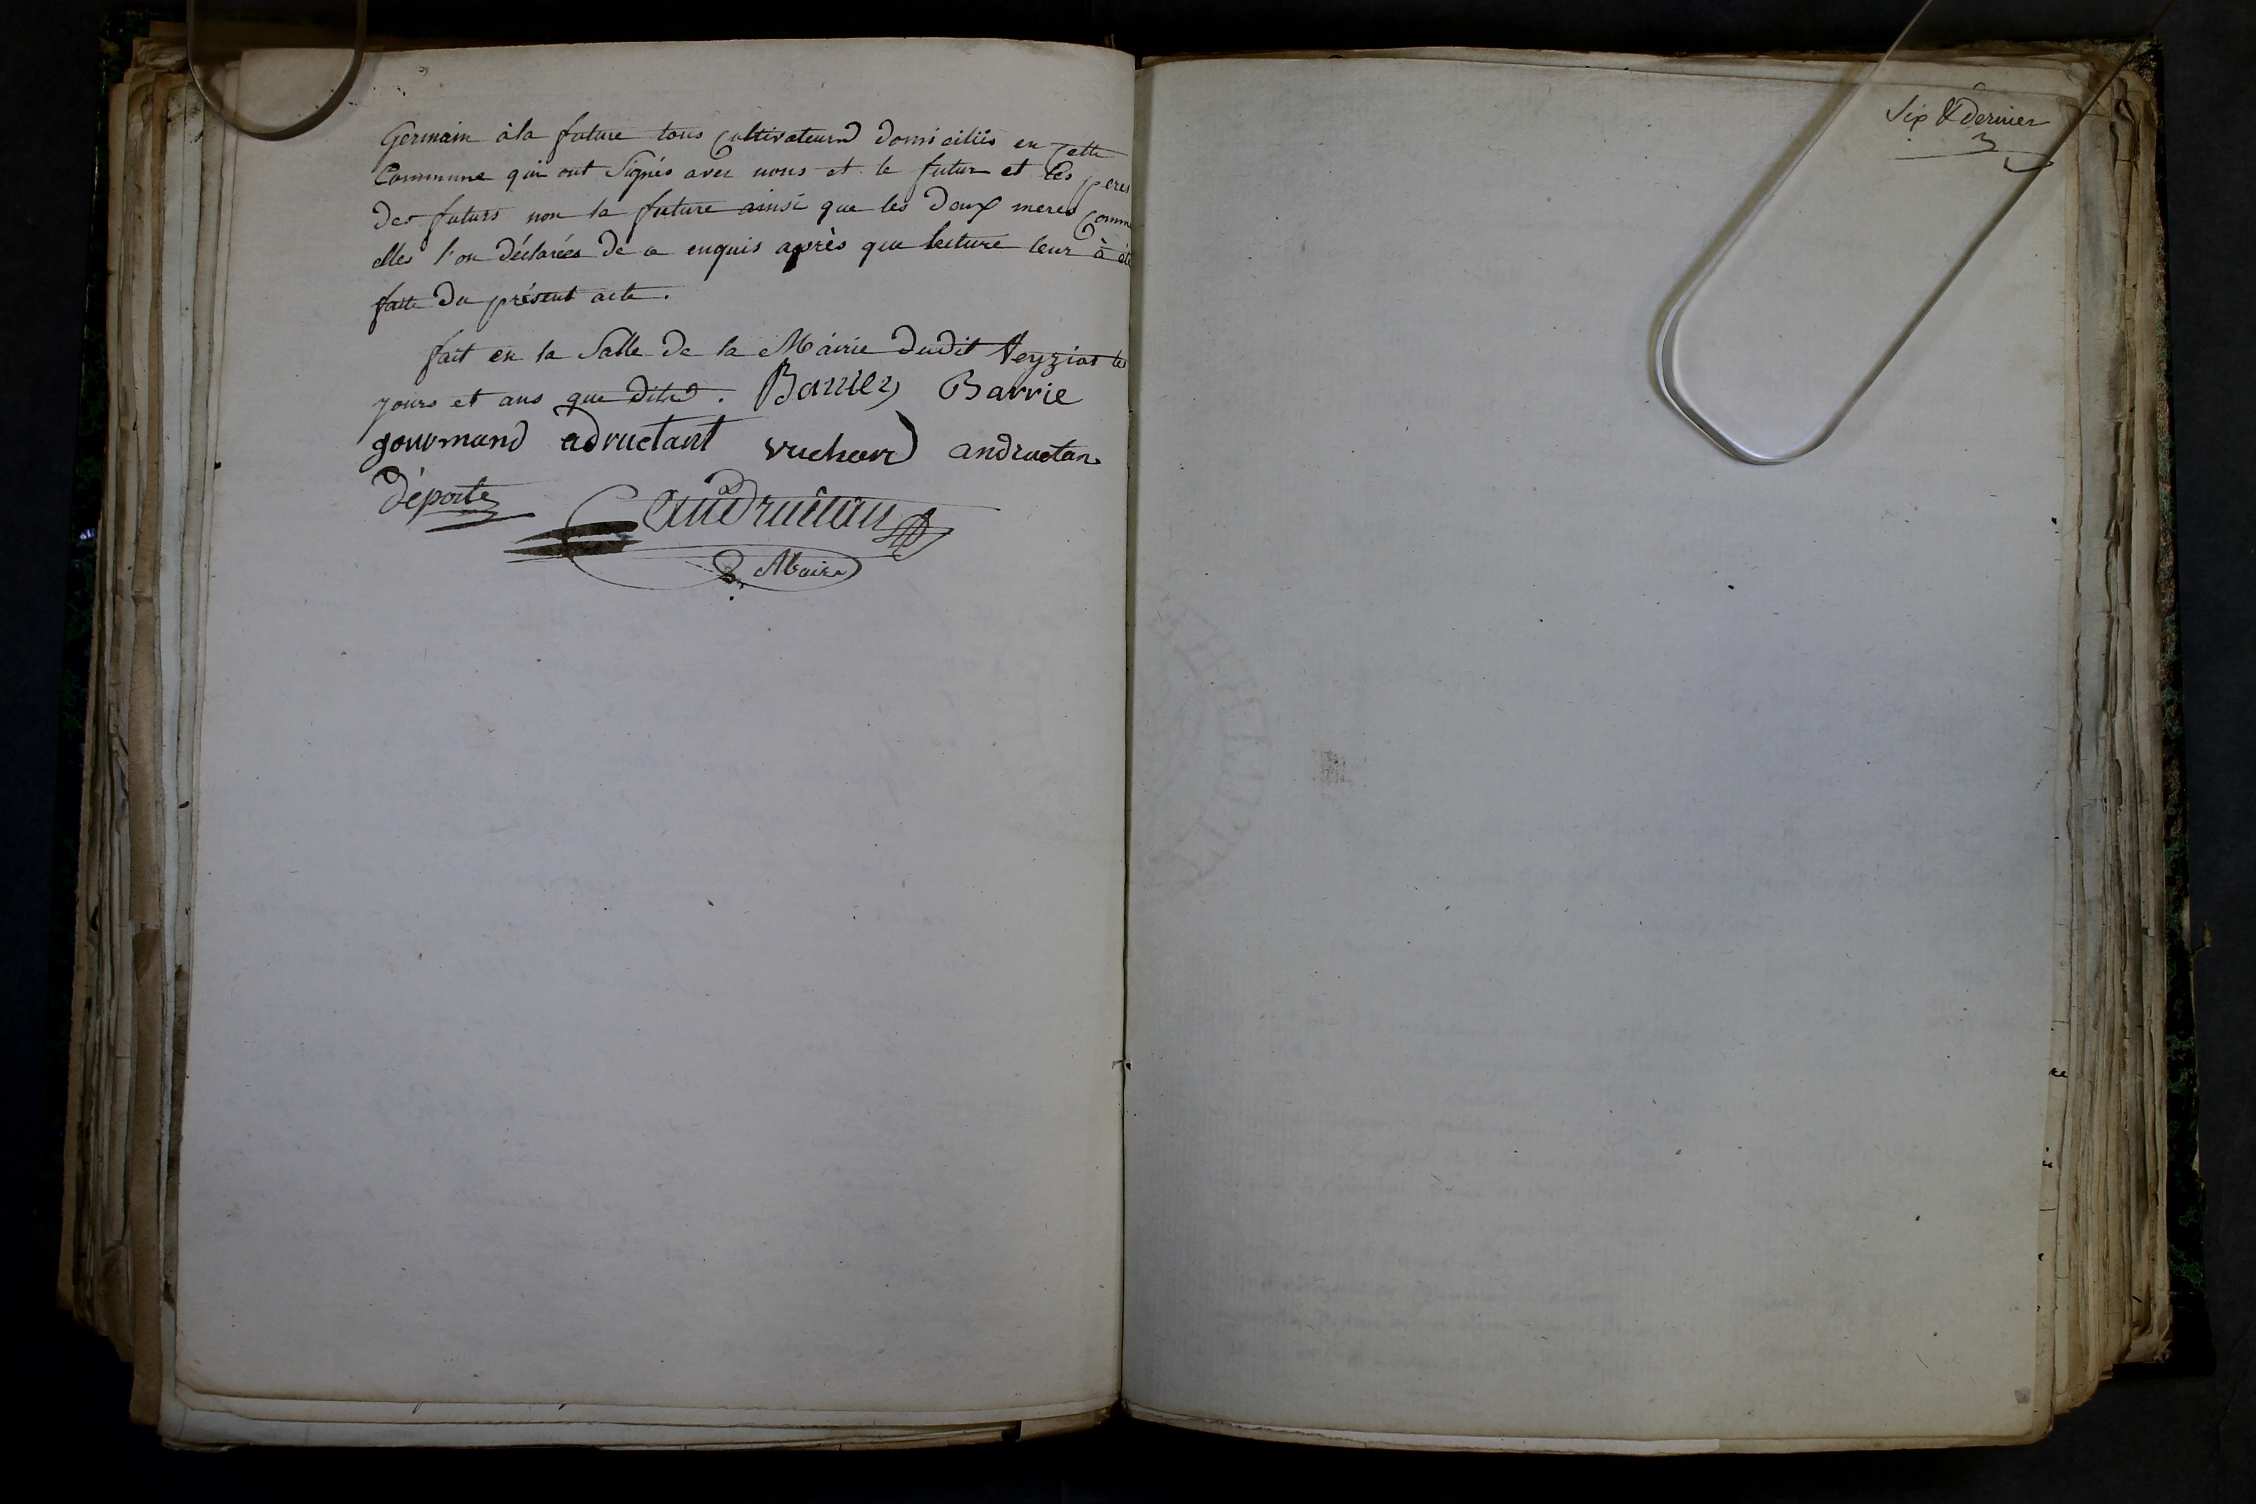 Germain à la future tous Cultivateurs domiciliés en Cette
Commune qui ont Signés avec nous et le futur et les peres
des futurs non la future ainsi que les deux meres Comme
elles l'on déclarées de ce enquis après que lecture leur à été
faite du présent acte.
fait en la Salle de la Mairie dudit Veyziat les
jours et ans que dites. Barrie
gourmand adructant vuchard andructan
déporte
andructan
Maire
Six & dernier